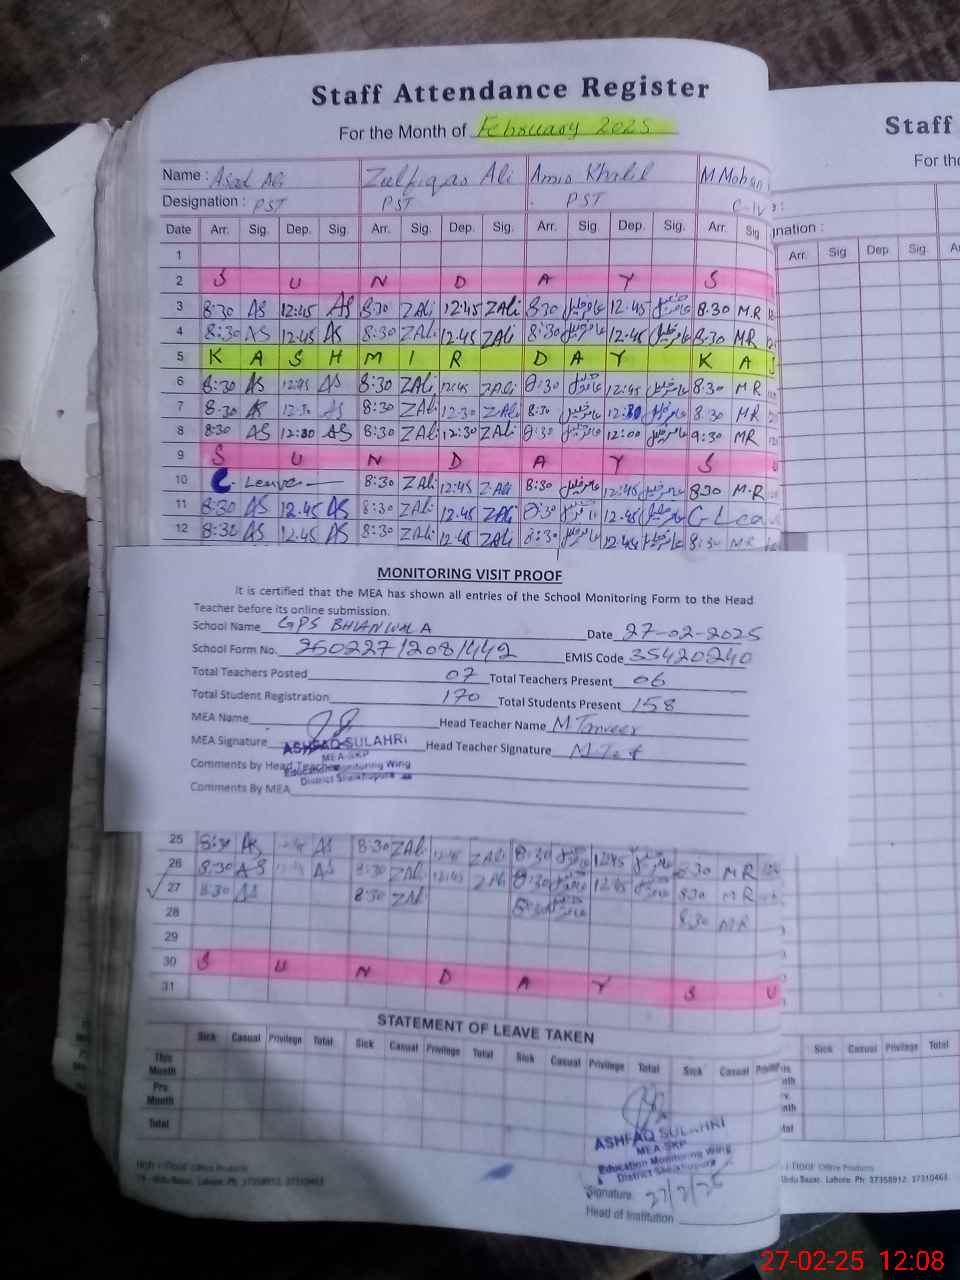 Staff Attendance Register
For the Month of February 2025
Name : Asad Ali Zulfiqar Ali Amir Khalil M Mohsin
Designation : PST PST PST C-IV
Date Arr. Sig. Dep. Sig. Arr. Sig. Dep. Sig. Arr. Sig. Dep. Sig. Arr. Sig
1
2 S U N D A Y S
3 8:30 AS 12:45 AS 8:30 ZALi 12:45 ZALi 8:30 عامر خلیل 12:45 عامر خلیل 8.30 M.R
4 8:30 AS 12.45 AS 8:30 ZALi 12.45 ZALi 8:30 عامر خلیل 12:45 عامر خلیل 8.30 MR
5 K A S H M I R D A Y K A S
6 8:30 AS 12:45 AS 8:30 ZALi 12:45 ZALi 8:30 عامر خلیل 12:45 عامر خلیل 8.30 MR
7 8:30 AS 12:30 AS 8:30 ZALi 12:30 ZALi 8:30 عامر خلیل 12:30 عامر خلیل 8.30 MR
8 8:30 AS 12:30 AS 8:30 ZALi 12:30 ZALi 8:30 عامر خلیل 12:00 عامر خلیل 9:30 MR
9 S U N D A Y S U
10 C. Leave 8:30 ZALi 12:45 ZALi 8:30 عامر خلیل 12:45 عامر خلیل 830 M.R
11 8:30 AS 12.45 AS 8:30 ZALi 12.45 ZALi 8:30 عامر خلیل 12:45 عامر خلیل C Leav
12 8:30 AS 12.45 AS 8:30 ZALi 12:45 ZALi 8:30 عامر خلیل 12:45 عامر خلیل 8:30 MR
MONITORING VISIT PROOF
It is certified that the MEA has shown all entries of the School Monitoring Form to the Head
Teacher before its online submission.
School Name GPS BHIANWALA Date 27-02-2025
School Form No. 250227/1208/442 EMIS Code 35420240
Total Teachers Posted 07 Total Teachers Present 06
Total Student Registration 170 Total Students Present 158
MEA Name Head Teacher Name M Tanveer
MEA Signature Head Teacher Signature
ASHFAQ SULAHRI
MEA-SKP
Education Monitoring Wing
District Sheikhupura
Comments by Head Teacher
Comments By MEA
25 8:30 AS 12:45 AS 8:30 ZALi 12:45 ZALi 8:30 عامر خلیل 12:45 عامر خلیل
26 8:30 AS 12:45 AS 8:30 ZALi 12:45 ZALi 8:30 عامر خلیل 12:45 عامر خلیل 8:30 MR
27 8:30 AS 8:30 ZALi 8:30 عامر خلیل 830 MR
28 8:30 MR
29
30 S U N D A Y S U
31
STATEMENT OF LEAVE TAKEN
Sick Casual Privilege Total Sick Casual Privilege Total Sick Casual Privilege Total Sick Casual
This Month
Pre Month
Total
ASHFAQ SULAHRI
MEA-SKP
Education Monitoring Wing
District Sheikhupura
Signature 27/2/25
Head of Institution
Office Products
Urdu Bazar, Lahore. Ph: 37358912, 37310461
Staff
For the
nation :
Arr. Sig. Dep. Sig.
Sick Casual Privilege Total
Office Products
Urdu Bazar, Lahore. Ph: 37358912, 37310461
27-02-25 12:08